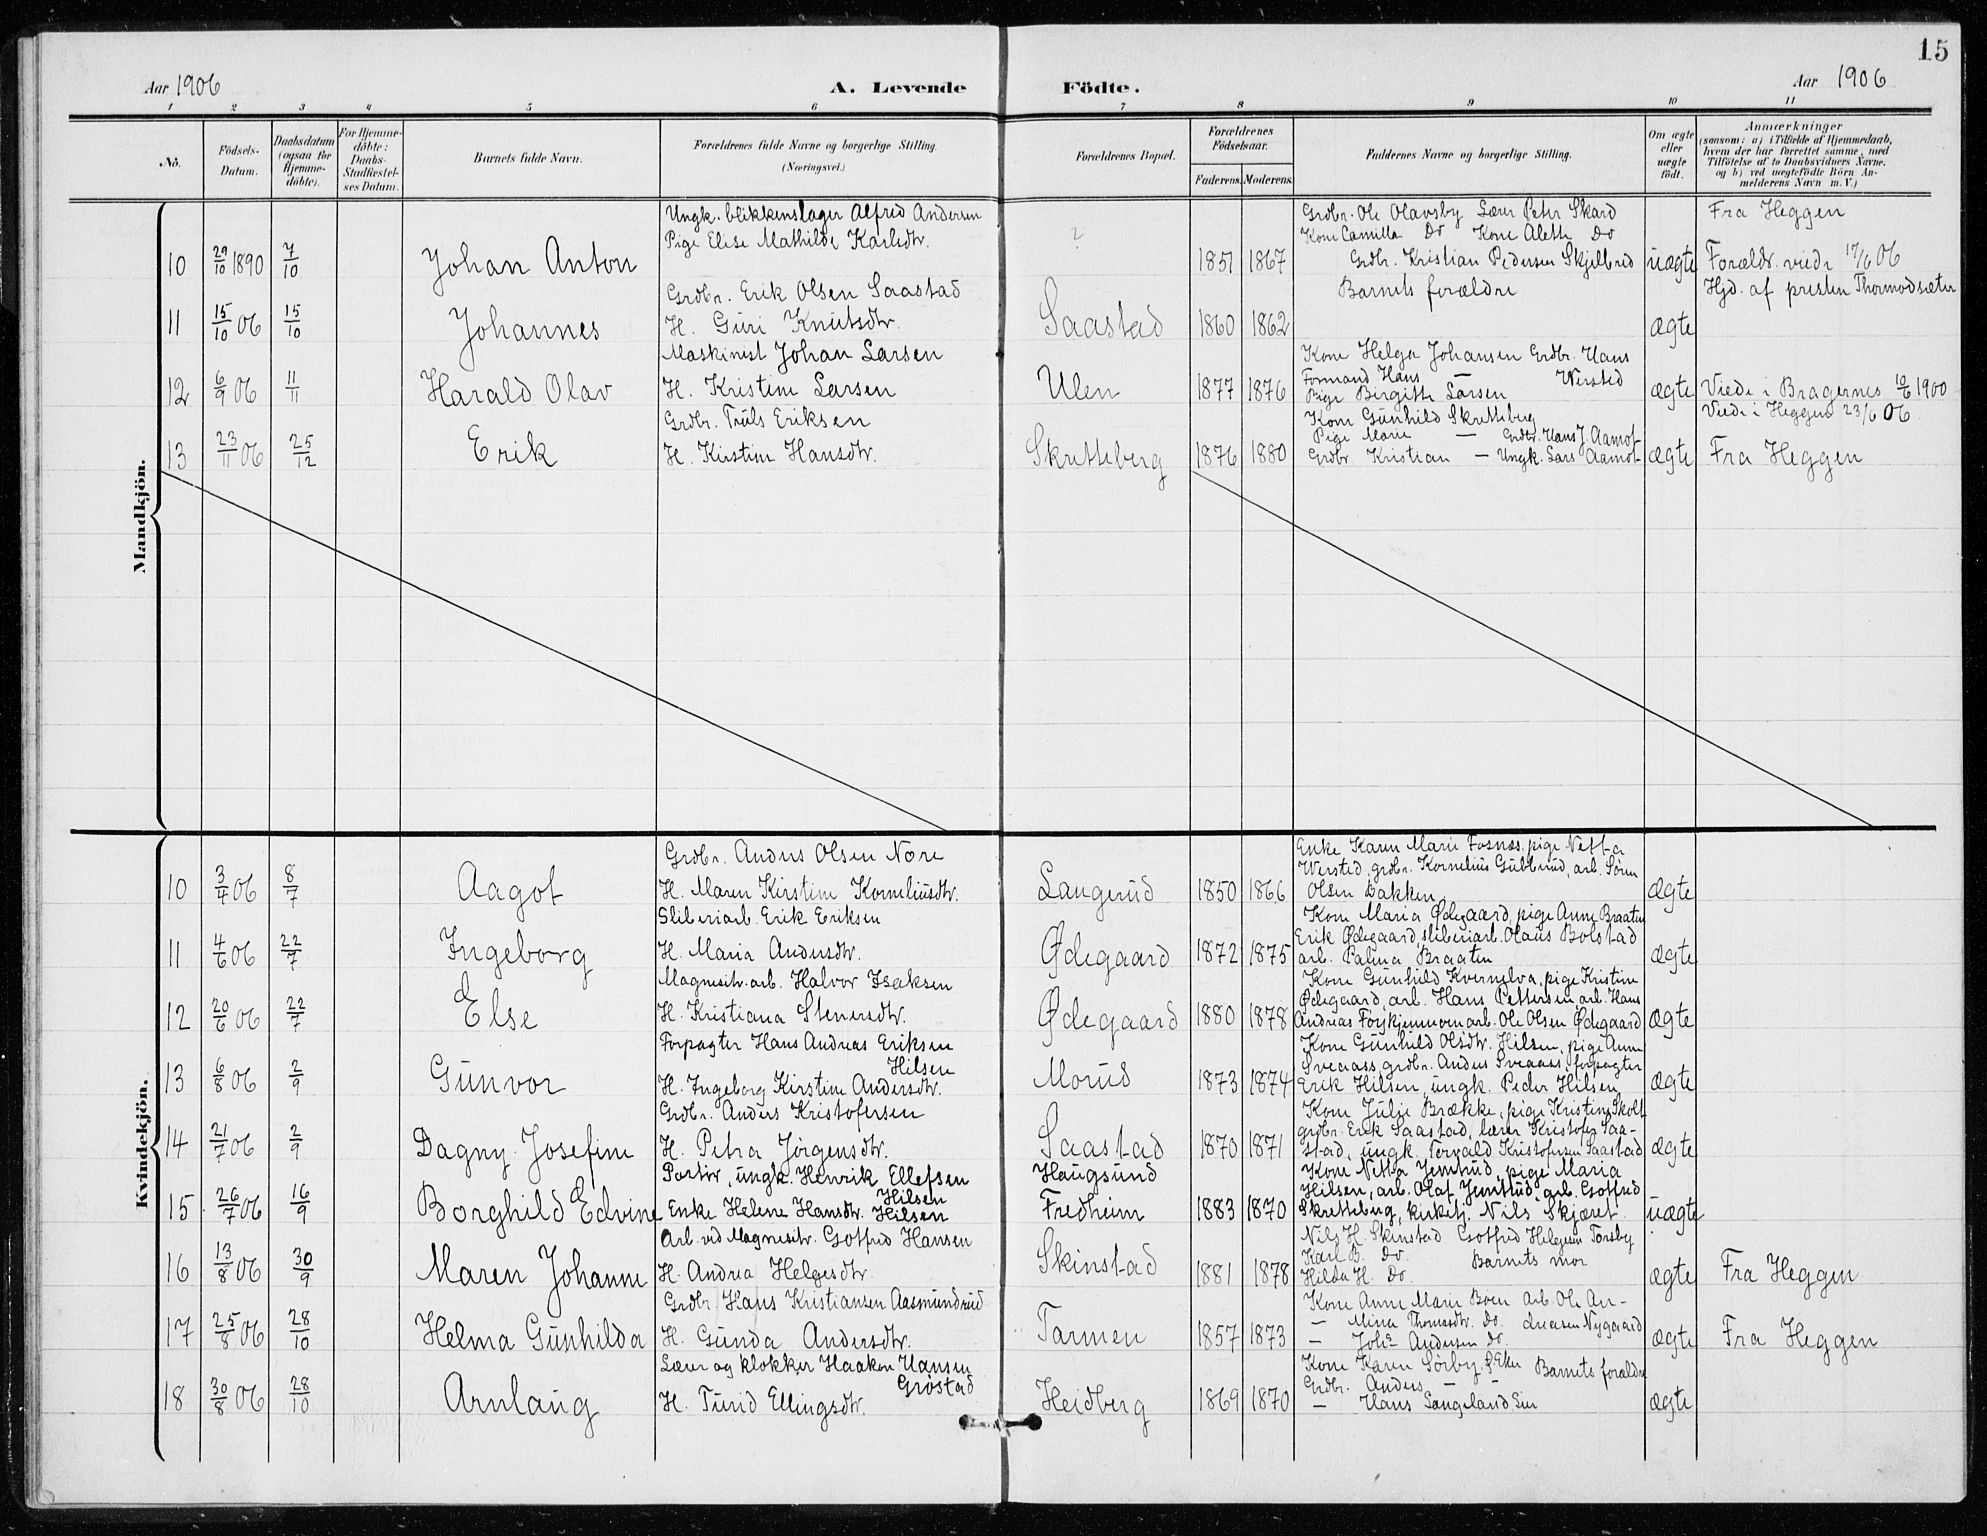 15
Aar 1906 A. Levende Födte. Aar 1906
1 2 3 4 5 6 7 8 9 10 11
No. Födsels-Datum. Daabsdatum (ogsaa for Hjemmedöbte). For Hjemmedöbte: Daabs-Stadfæstelses Datum. Barnets fulde Navn. Forældrenes fulde Navne og borgerlige Stilling. (Næringsvei.) Forældrenes Bopæl. Forældrenes Födselsaar. Faderens. Moderens. Faddernes Navne og borgerlige Stilling. Om ægte eller uægte födt. Anmærkninger (saasom: a) i Tilfælde af Hjemmedaab, hvem der har forrettet samme, med Tilföielse af to Daabsvidners Navne. og b) ved uægtefödte Börn Anmelderens Navn m. V.)
Mandkjön.
Ungk. blikkenslager Alfred Andersen Grdbr. Ole Olavsby Lærer Peter Skard Fra Heggen
Pige Elise Mathilde Karlsdtr. ? Kone Camilla Do Kone Alethe Do
10 29/10 1890 7/10 Johan Anton 1851 1867 Grdbr. Kristian Pedersen Skjelbred uægte Forældr. viede 17/6 06
Grdbr. Erik Olsen Saastad Barnets forældre Hjd. af presten Thormodsæter
11 15/10 06 15/10 Johannes H. Guri Knutsdtr. Saastad 1860 1862 ægte
Maskinist Johan Larsen Kone Helga Johansen Grdbr. Hans
12 6/9 06 11/11 Harald Olav H. Kristine Larsen Ulen 1877 1876 Formand Hans — Wersted ægte Viede i Bragernes 10/6 1900
Pige Birgitte Larsen
Grdbr. Truls Eriksen Kone Gunhild Skretteberg Viede i Heggen 23/6 06
Pige Marie — Grdbr. Hans J. Aamot
13 23/11 06 25/12 Erik H. Kirstine Hansdtr. Skretteberg 1876 1880 Grdbr. Kristian — Ungk. Lars Aamot ægte Fra Heggen
Kvindekjön.
Grdbr. Anders Olsen Nore Enke Karen Marie Fosnæs, pige Netta
Wersted, grdbr. Kornelius Gubberud, arb. Søren
10 3/4 06 8/7 Aagot H. Maren Kirstine Korneliusdtr. Langerud 1850 1866 Olsen Bakken ægte
Sliberiarb. Erik Eriksen Kone Maria Ødegaard, pige Anne Braaten
Erik Ødegaard, sliberiarb. Olaus Bolstad
11 4/6 06 22/7 Ingeborg H. Maria Andersdtr. Ødegaard 1872 1875 arb. Palma Braaten ægte
Magnesitr. arb. Halvor Isaksen Kone Gunhild Kvernelva, pige Kristine
Ødegaard, arb. Hans Pettersen arb. Hans
12 20/6 06 22/7 Else H. Kristiana Stenersdtr. Ødegaard 1880 1878 Andreas arb. Ole Olsen Ødegaard ægte
Forpagter Hans Andreas Eriksen Kone Gunhild Olsdtr. Hilsen, pige Anne
Hilsen Sveaass grdbr. Anders Sveaass, forpagter
13 6/8 06 2/9 Gunvor H. Ingeborg Kirstine Andersdtr. Morud 1873 1874 Erik Hilsen, ungk. Peder Hilsen ægte
Grdbr. Anders Kristofersen Kone Julie Brække, pige Kristine Skolt
grdbr. Erik Saastad, lærer Kristofer Saa-
14 21/7 06 2/9 Dagny Josefine H. Petra Jørgensdtr. Saastad 1870 1871 stad, ungk. Torvald Kristofersen Saastad ægte
Portør, ungk. Henrik Ellefsen Haugsund Kone Netta Jemtrud, pige Maria
Hilsen Hilsen, arb. Olaf Jemtrud, arb. Gotfred
15 26/7 06 16/9 Borghild Edvine Enke Helene Hansdtr. Hilsen Fredheim 1883 1870 Skretteberg, kirketj. Nils Skjæret uægte
Arb. ved Magnesitr. Gotfred Hansen Nils H. Skinstad Gotfred Helgesen Torsby
Skinstad Karl B. Do. Barnets mor
16 13/8 06 30/9 Maren Johanne H. Andrea Helgesdtr. 1881 1878 Hilda H. Do. ægte Fra Heggen
Grdbr. Hans Kristiansen Aasmundrud Kone Anne Marie Boen Arb. Ole An-
— Mina Thomsdtr. Do. dreasen Nygaard
17 25/8 06 28/10 Helma Gunhilda H. Gunda Andersdtr. Tarmen 1857 1873 — Johs Andersen Do. ægte Fra Heggen
Lærer og klokker Haaken Hansen Kone Karen Sørby, Barnets forældre
Grøstad Grdbr. Anders — —
18 30/8 06 28/10 Arnlaug H. Turid Ellingsdtr. Heidberg 1869 1870 — Hans Langeland ægte